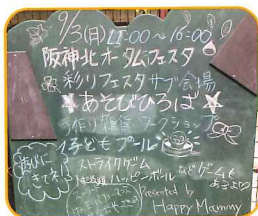 9/3(月) 11:00〜16:00
阪神北オータムフェスタ
彩りフェスタサブ会場
★あそびひろば★
手作り雑貨 ワークショップ
子どもプール
遊びに
きてネ!
ストライクゲーム
ハッピーボールなどゲームも
あるよ♡
Presented by
Happy Mammy